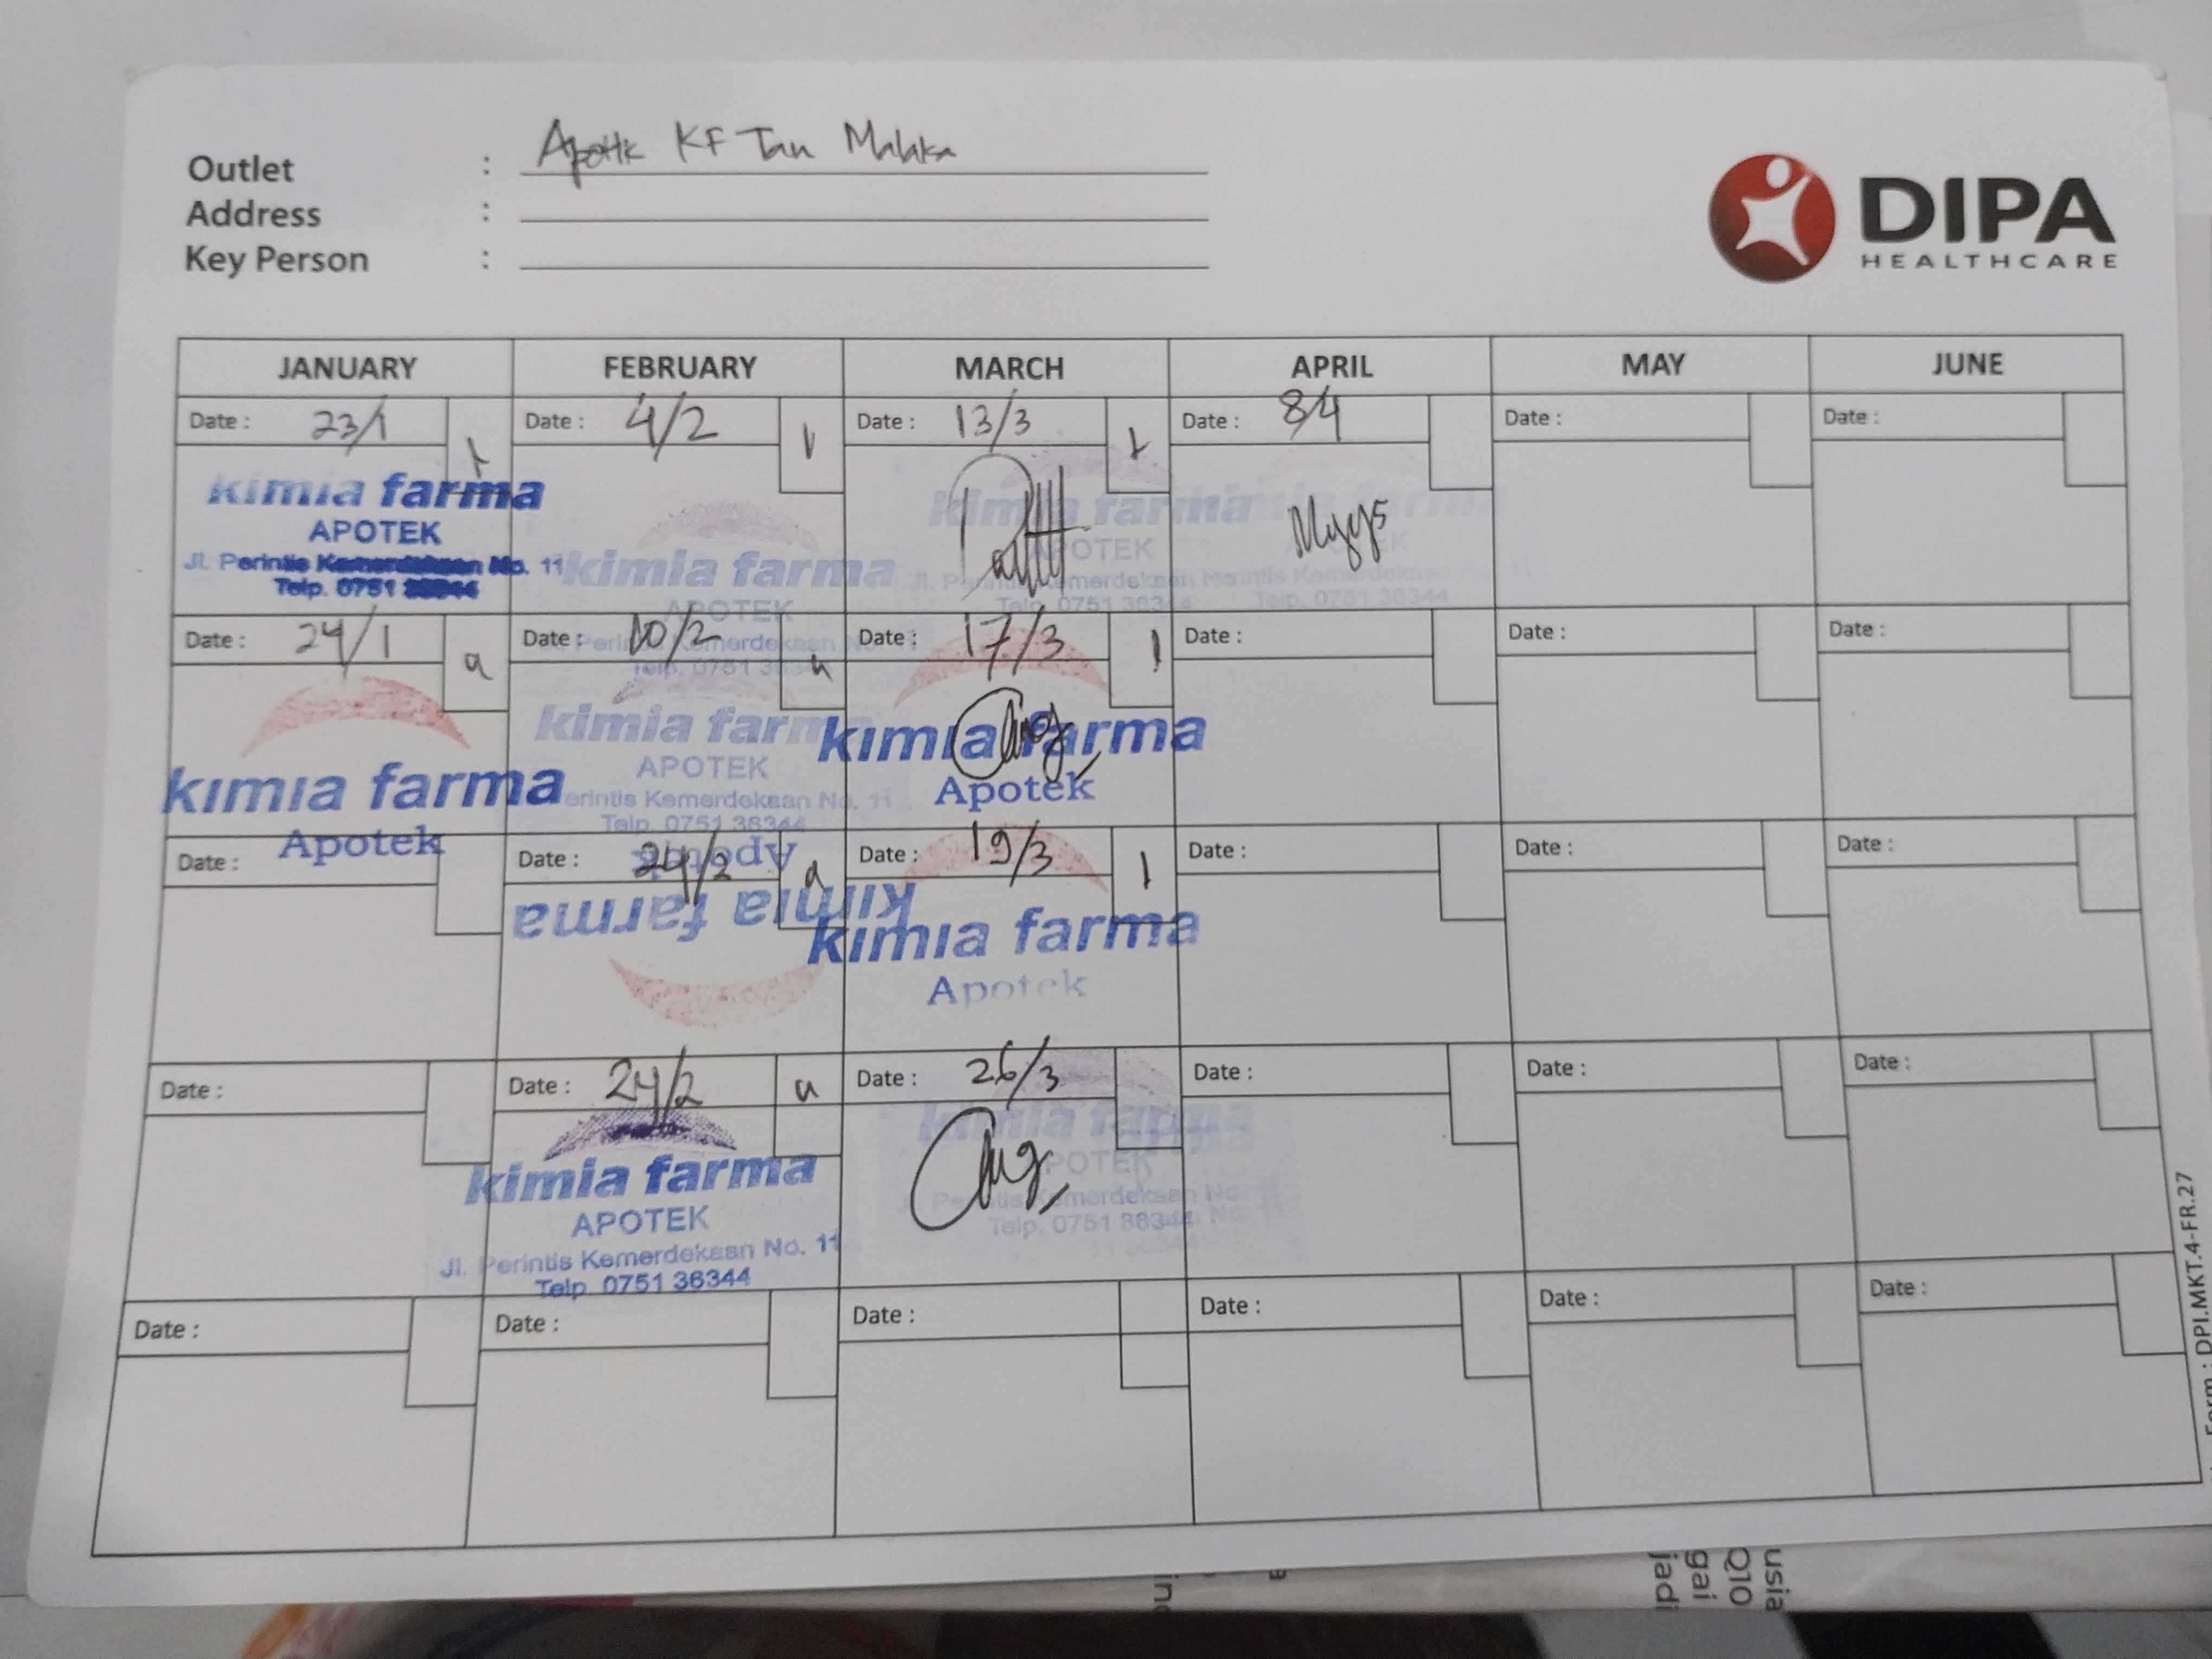 Outlet : Apotik KF Tan Malaka
Address :
Key Person :
DIPA
HEALTHCARE
JANUARY FEBRUARY MARCH APRIL MAY JUNE
Date : 23/1 Date : 4/2 Date : 13/3 Date : 8/4 Date : Date :
kimia farma
APOTEK
Jl. Perintis Kemerdekaan No. 11
Telp. 0751
kimia farma
APOTEK
Perintis Kemerdekaan No. 11
Telp. 0751 36344
kimia farma
APOTEK
Jl. Perintis Kemerdekaan No.
Telp. 0751 36344
kimia farma
Telp. 0751 36344
Date : 24/1 a Date : 10/2 a Date : 17/3 1 Date : Date : Date :
kimia farma
Apotek
kimia farma
APOTEK
Perintis Kemerdekaan No. 11
Telp. 0751 36344
kimia farma
Apotek
Date : Date : 24/2 a Date : 19/3 1 Date : Date : Date :
Apotek
kimia farma
kimia farma
Apotek
Date : Date : 24/2 a Date : 26/3 Date : Date : Date :
kimia farma
APOTEK
Jl. Perintis Kemerdekaan No. 11
Telp. 0751 36344
kimia farma
APOTEK
Jl. Perintis Kemerdekaan No.
Telp. 0751 36344
Date : Date : Date : Date : Date : Date :
Form : DPI.MKT.4-FR.27
usia
Q10
gai
jadi